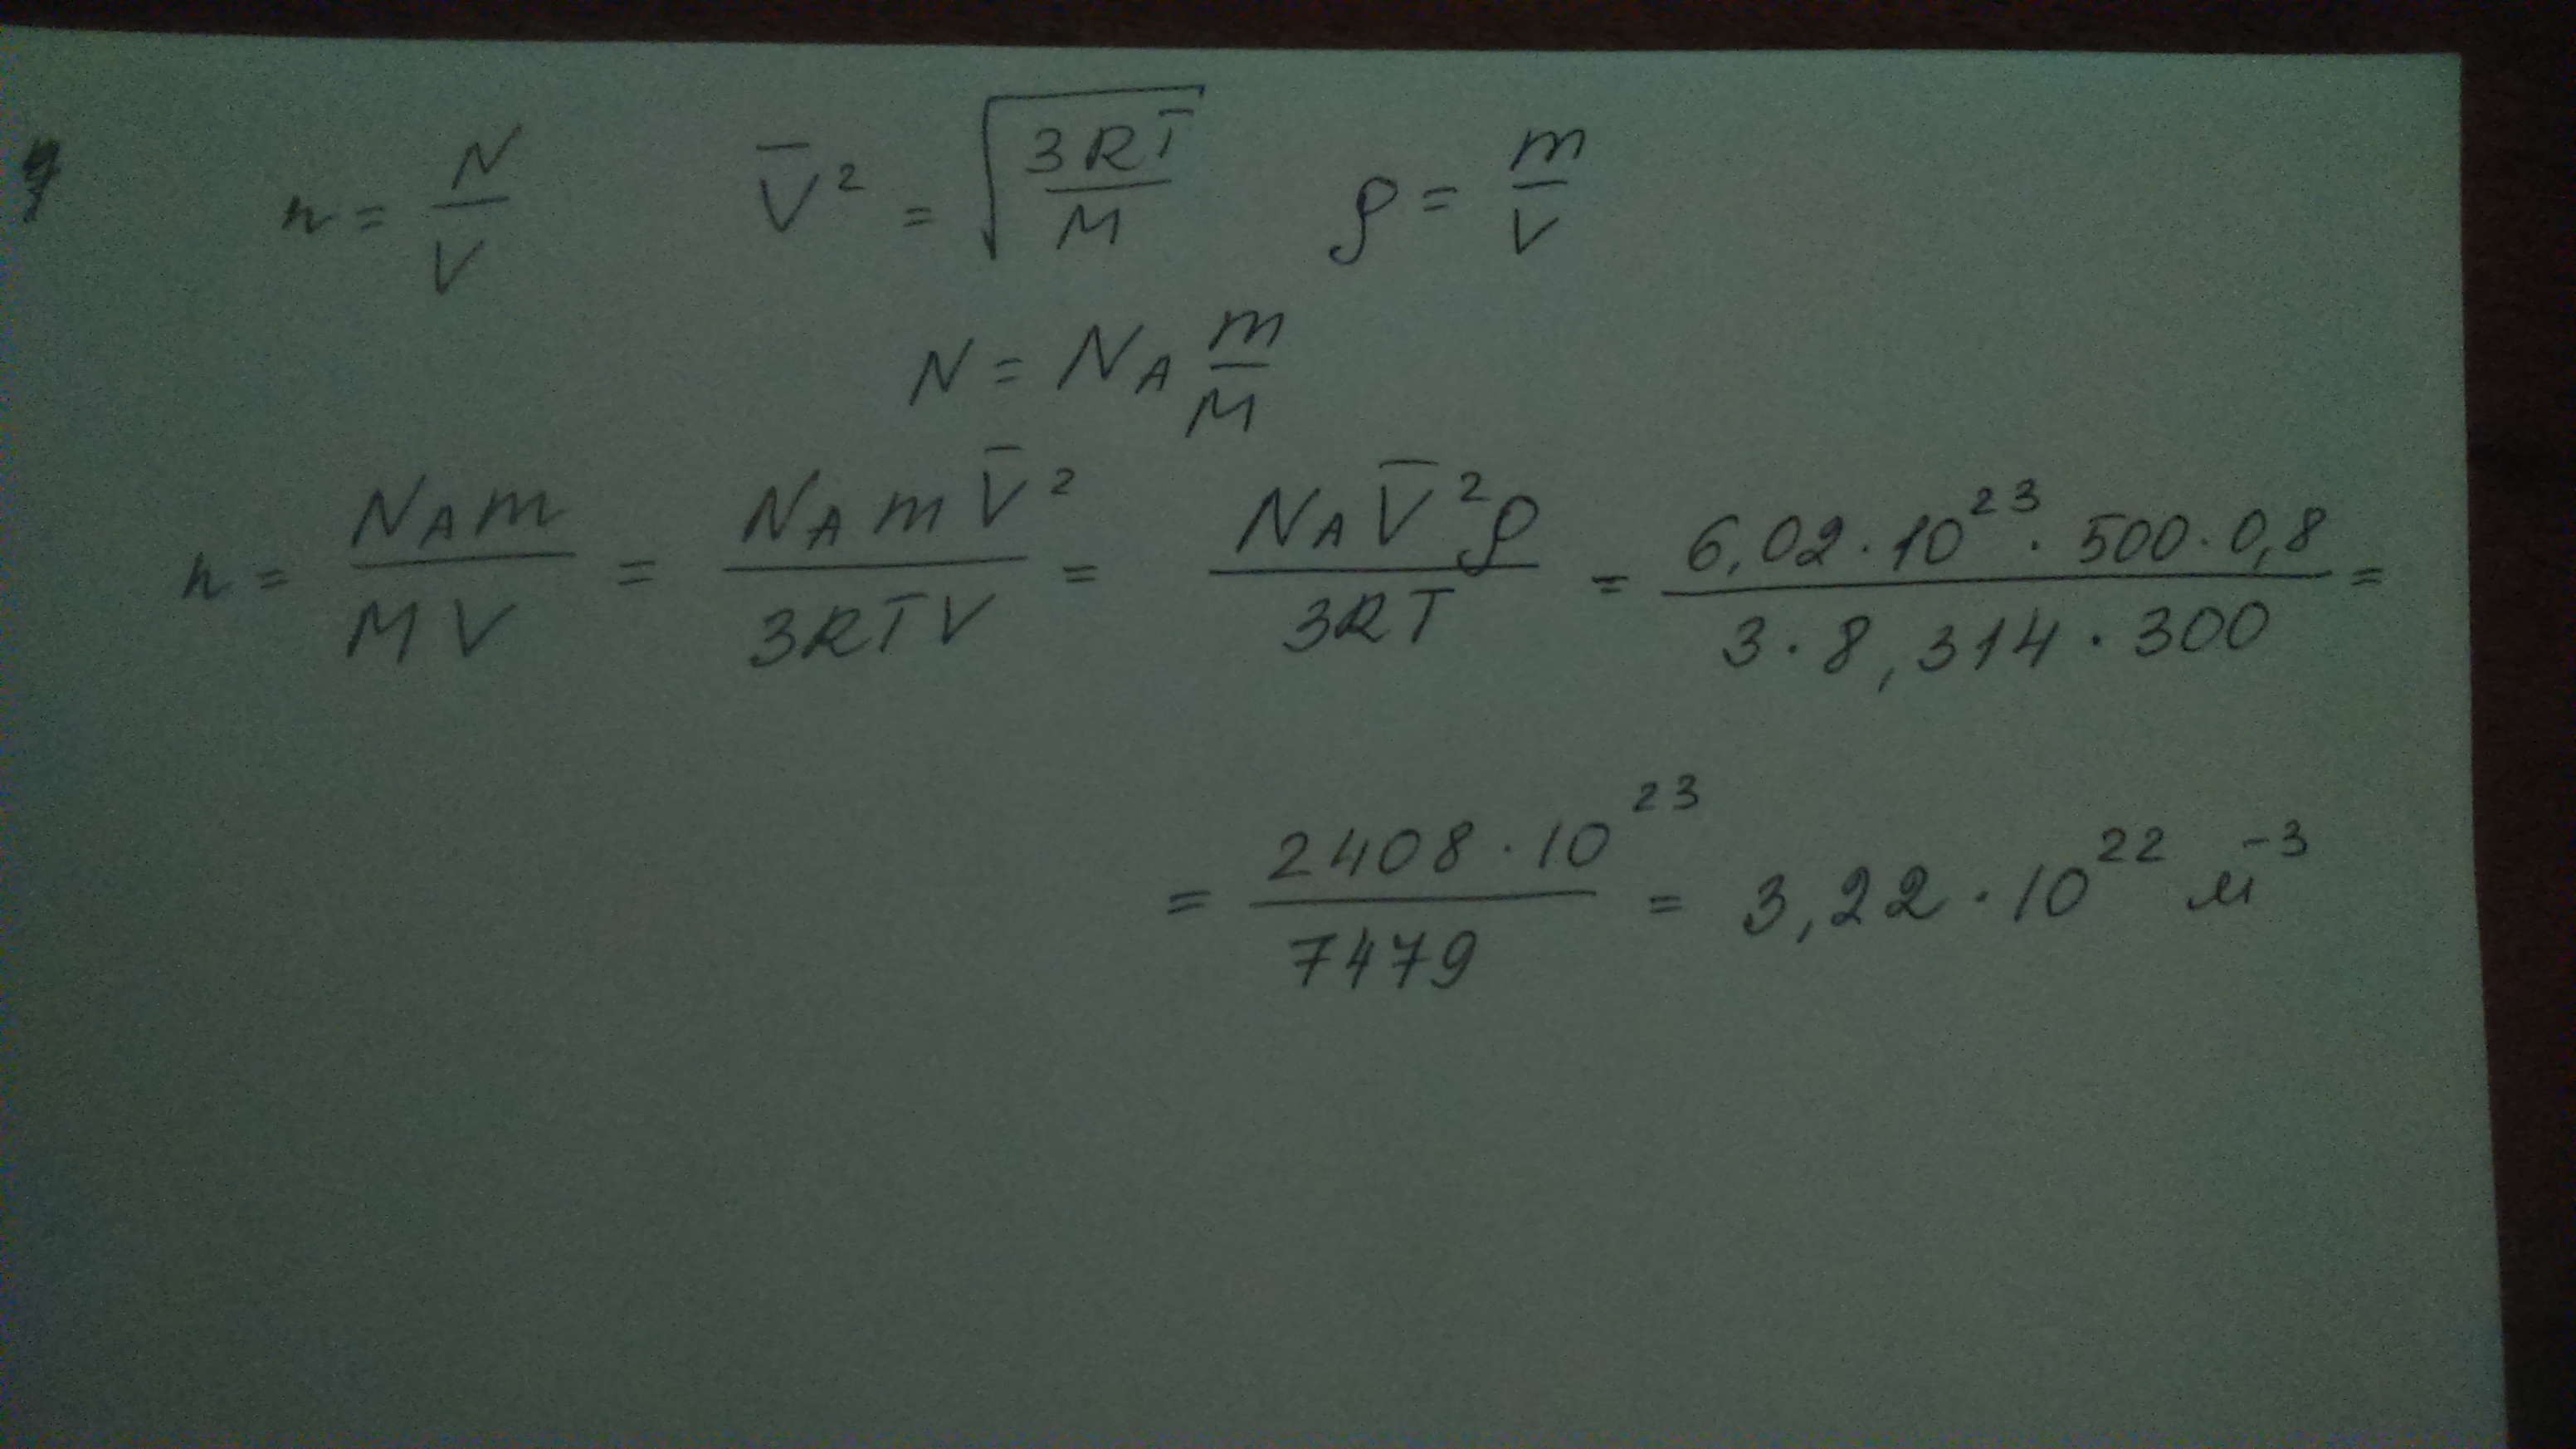 n = N/V V̅² = √(3RT/M) ρ = m/V
N = N_A m/M
n = N_A m / MV = N_A m V̅² / 3RTV = N_A V̅² ρ / 3RT = 6,02 · 10²³ · 500 · 0,8 / 3 · 8,314 · 300 =
= 2408 · 10²³ / 7479 = 3,22 · 10²² м⁻³